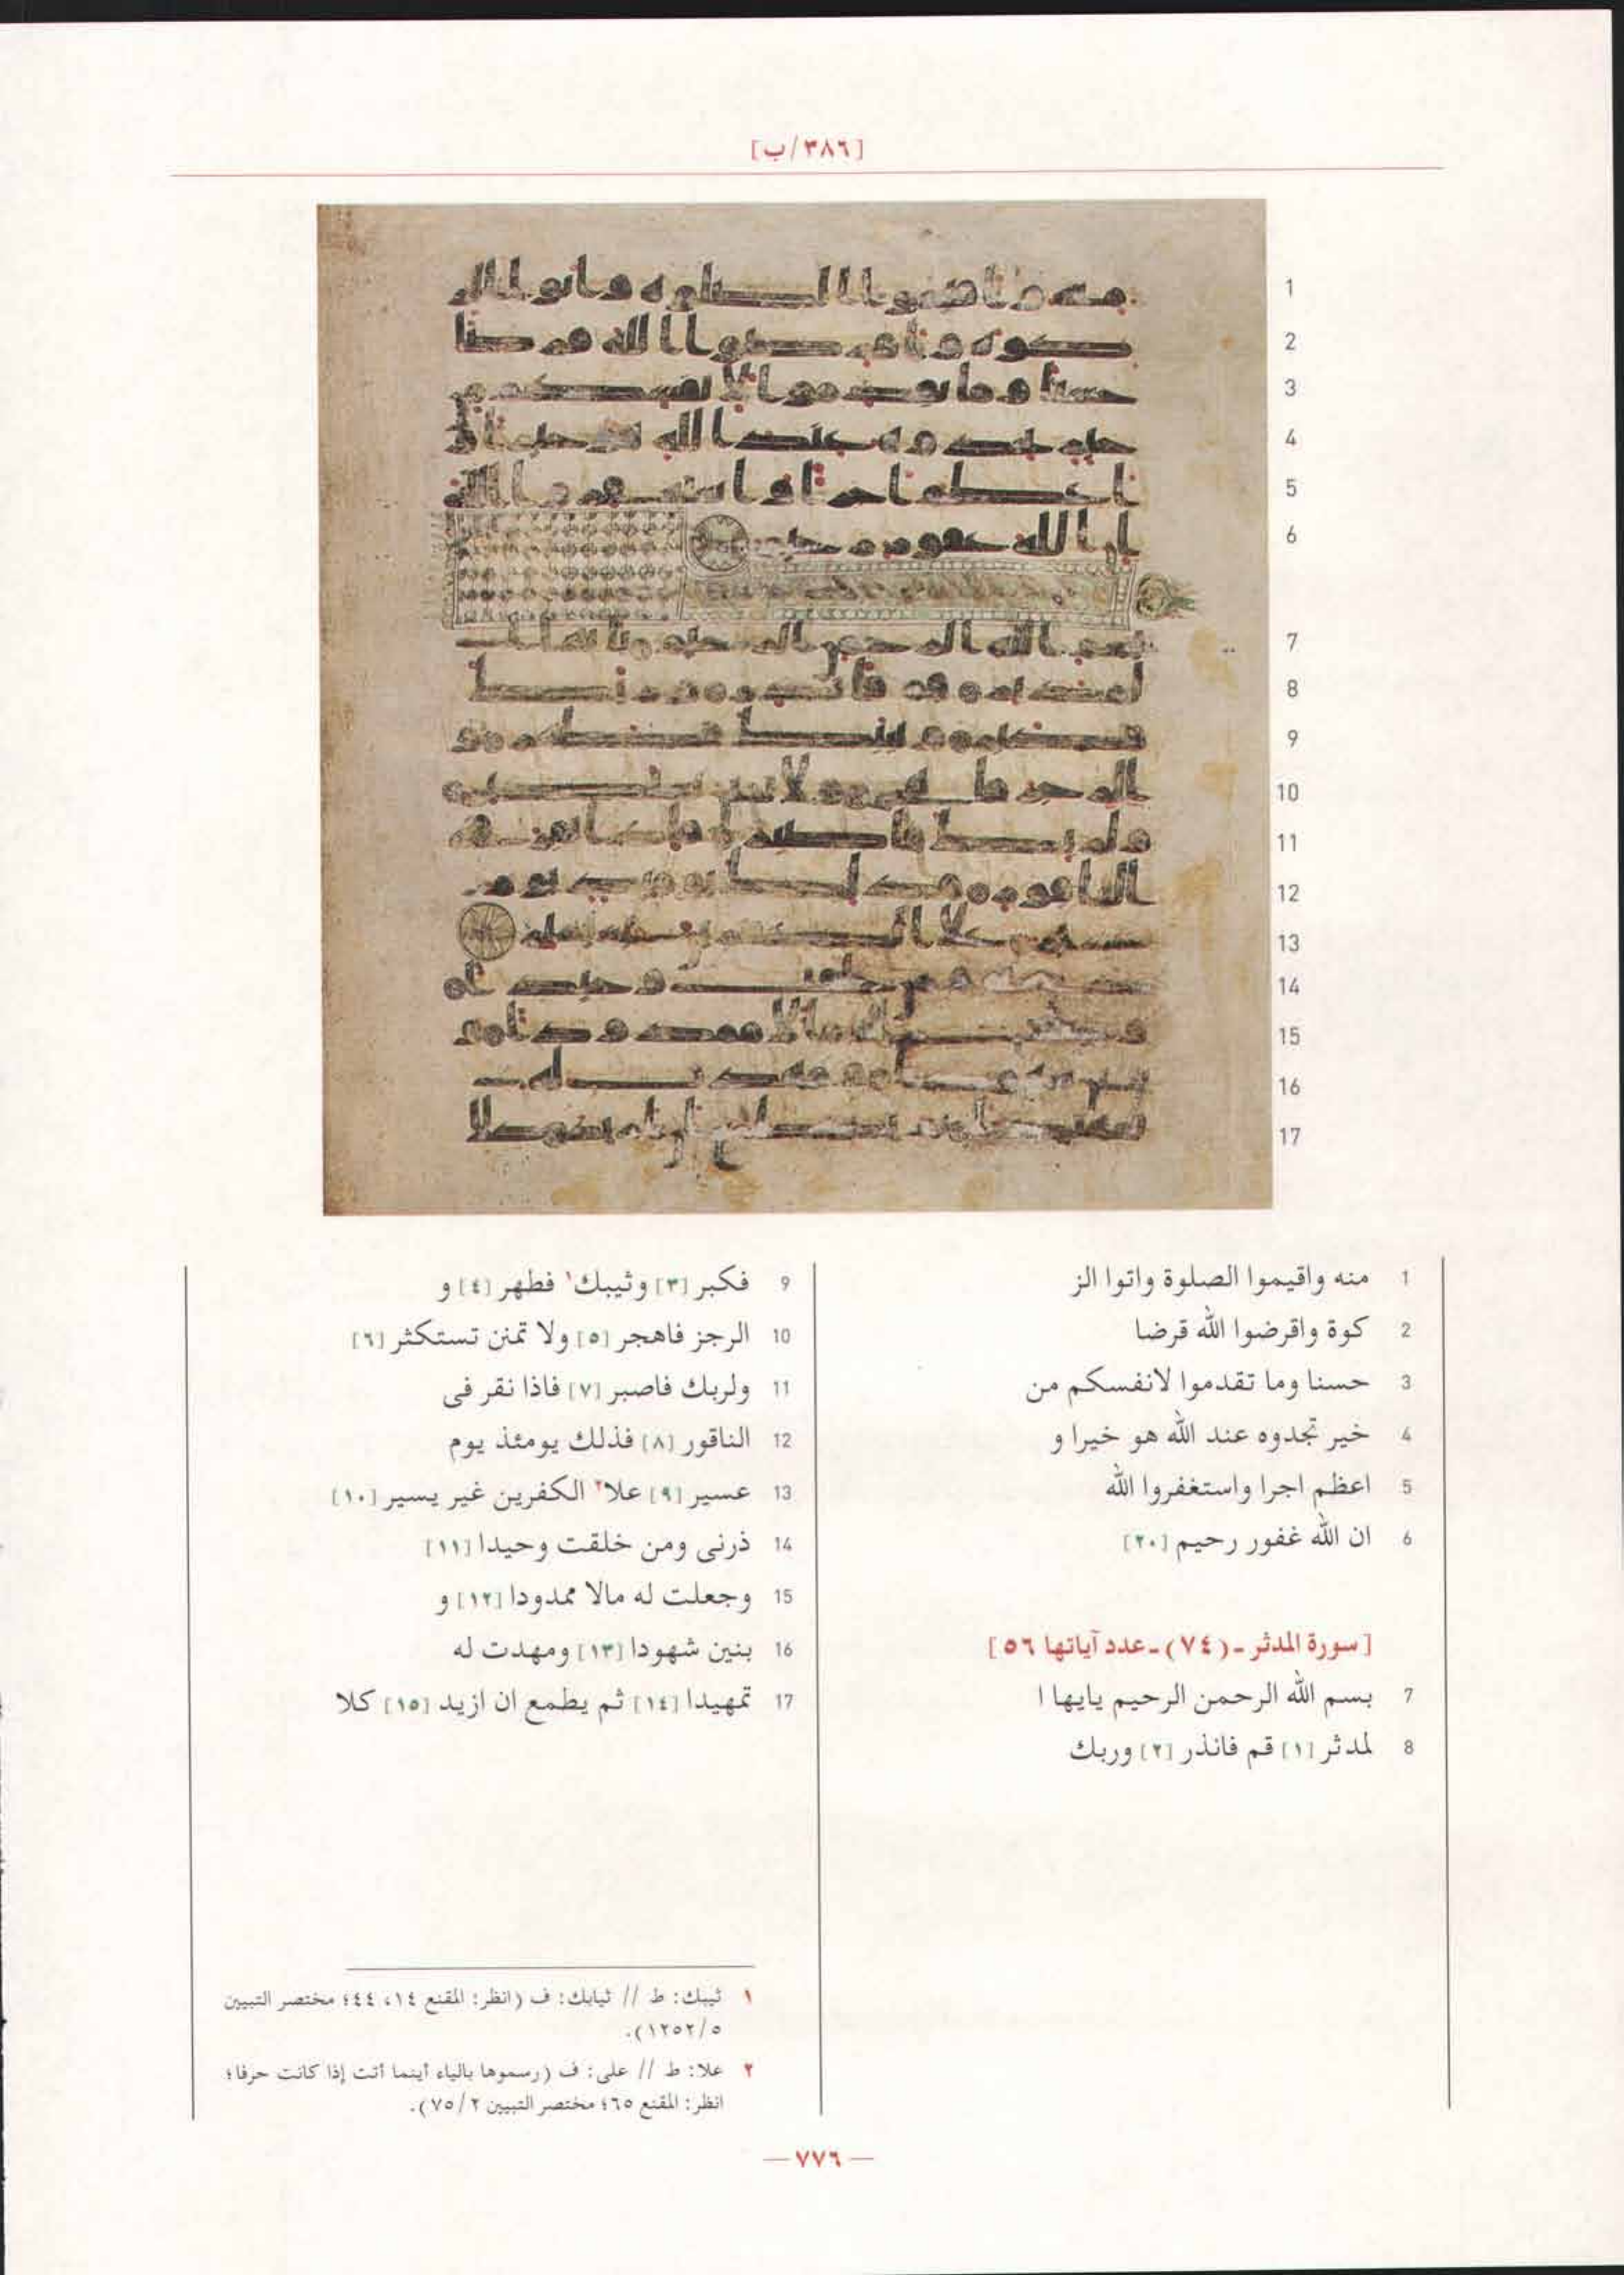 [٣٨٦/ب]
1
2
3
4
5
6
7
8
9
10
11
12
13
14
15
16
17
1 منه واقيموا الصلوة واتوا الز
2 كوة واقرضوا الله قرضا
3 حسنا وما تقدموا لانفسكم من
4 خير تجدوه عند الله هو خيرا و
5 اعظم اجرا واستغفروا الله
6 ان الله غفور رحيم [٢٠]
[سورة المدثر ـ (٧٤) ـ عدد آياتها ٥٦]
7 بسم الله الرحمن الرحيم يايها ا
8 لمدثر [١] قم فانذر [٢] وربك
9 فكبر [٣] وثيبك١ فطهر [٤] و
10 الرجز فاهجر [٥] ولا تمنن تستكثر [٦]
11 ولربك فاصبر [٧] فاذا نقر فى
12 الناقور [٨] فذلك يومئذ يوم
13 عسير [٩] علا٢ الكفرين غير يسير [١٠]
14 ذرنى ومن خلقت وحيدا [١١]
15 وجعلت له مالا ممدودا [١٢] و
16 بنين شهودا [١٣] ومهدت له
17 تمهيدا [١٤] ثم يطمع ان ازيد [١٥] كلا
١ ثيبك: ط // ثيابك: ف (انظر: المقنع ١٤، ٤٤؛ مختصر التبيين
٥/ ١٢٥٢).
٢ علا: ط // على: ف (رسموها بالياء أينما أتت إذا كانت حرفا؛
انظر: المقنع ٦٥؛ مختصر التبيين ٢/ ٧٥).
— ٧٧٦ —